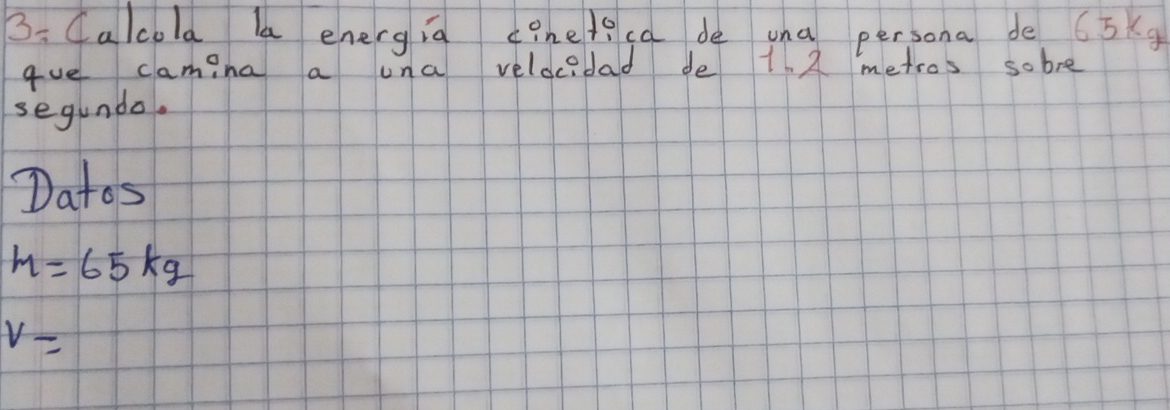 3= Calcula la energía cinetica de una persona de 65kg
que camina a una velocidad de 1.2 metros sobre
segundo.
Datos
m = 65 kg
v =